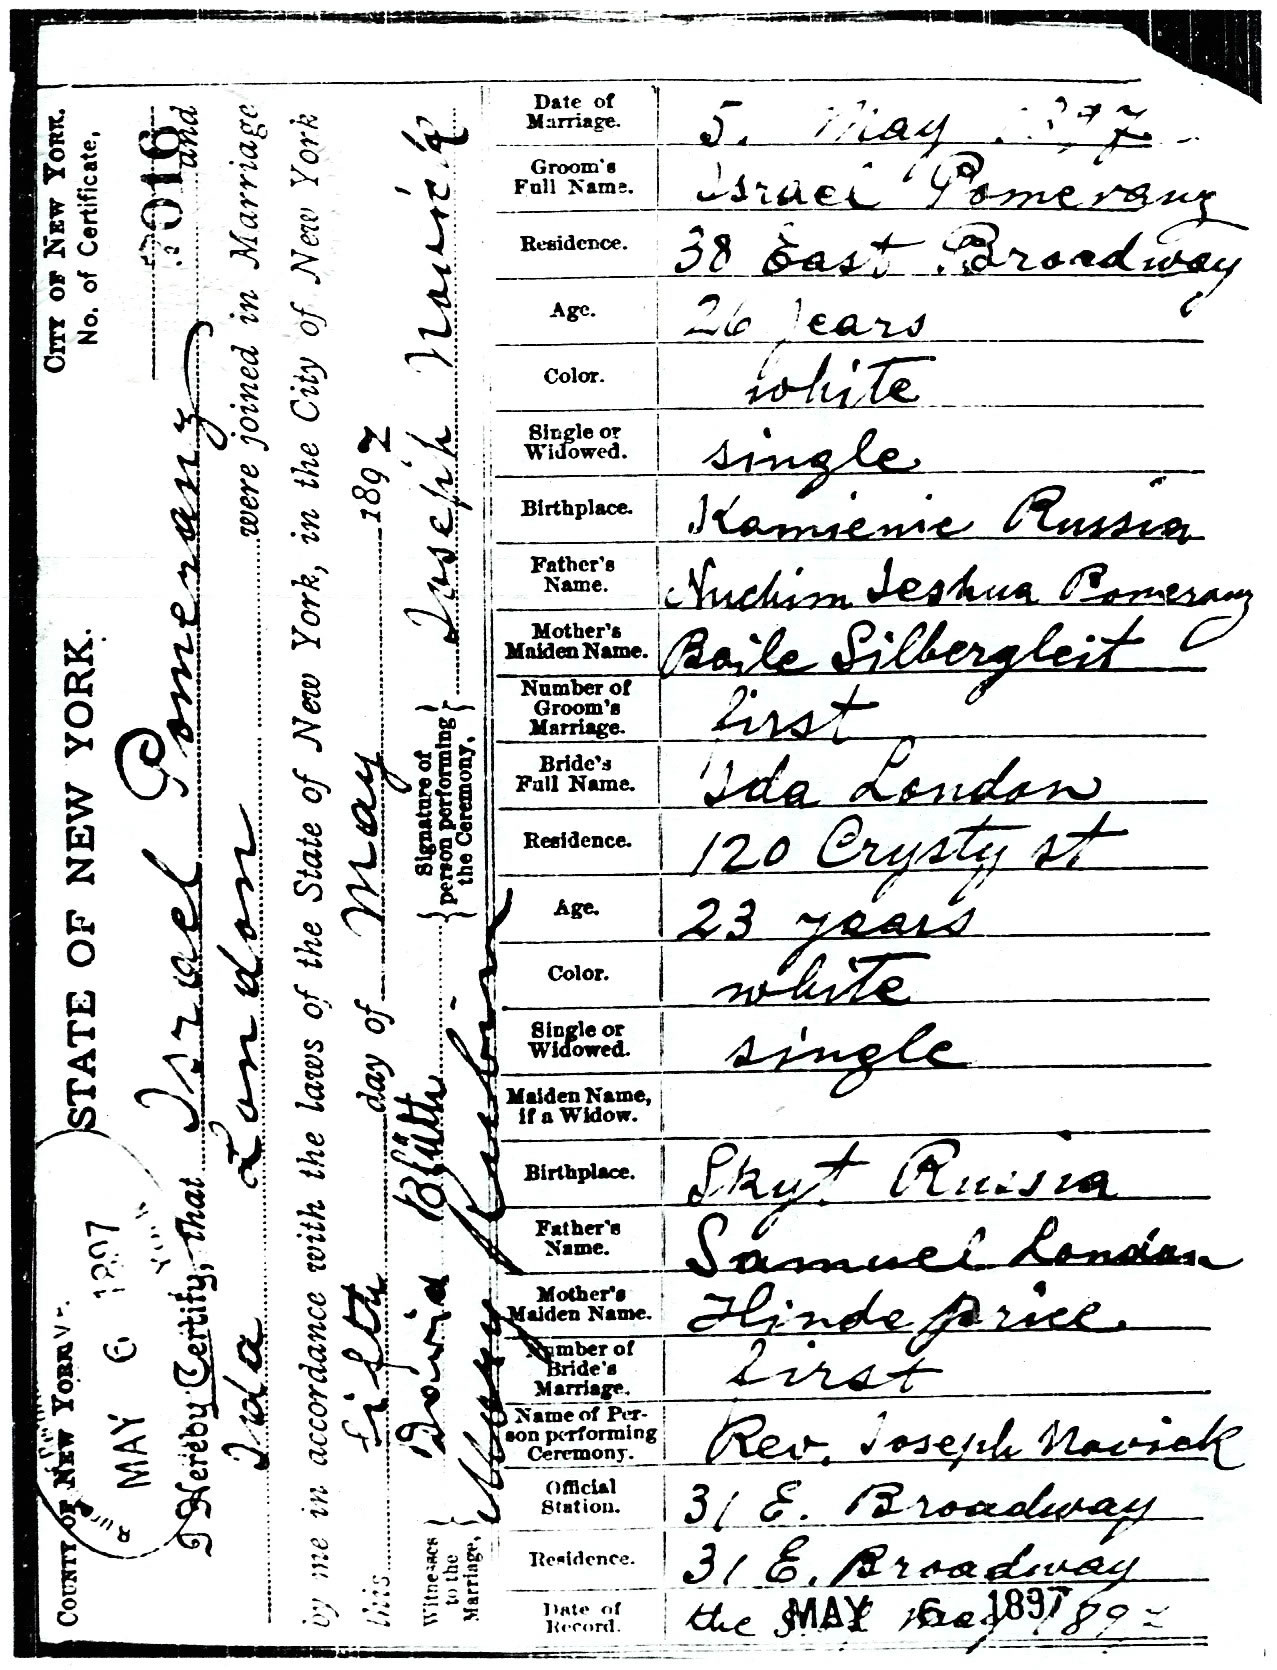 CITY OF NEW YORK.
No. of Certificate,
COUNTY OF NEW YORK
STATE OF NEW YORK.
MAY 6 1897
I Hereby Certify, that Israel Pomeranz and
Ida London were joined in Marriage
by me in accordance with the laws of the State of New York, in the City of New York
this fifth day of May 1897
Witnesses to the Marriage,
David Blüth
Signature of person performing the Ceremony,
Joseph Novick
Date of Marriage. 5. May 1897
Groom's Full Name. Israel Pomeranz
Residence. 38 East Broadway
Age. 26 Jears
Color. white
Single or Widowed. single
Birthplace. Kamienic Russia
Father's Name. Nuchim Jeshua Pomeranz
Mother's Maiden Name. Baile Silbergleit
Number of Groom's Marriage. first
Bride's Full Name. Ida London
Residence. 120 Crysty st
Age. 23 years
Color. white
Single or Widowed. single
Maiden Name, if a Widow.
Birthplace. Skyt Russia
Father's Name. Samuel London
Mother's Maiden Name. Hinde Price
Number of Bride's Marriage. first
Name of Person performing Ceremony. Rev. Joseph Novick
Official Station. 31 E. Broadway
Residence. 31 E. Broadway
Date of Record. the May 1897
MAY 6 1897